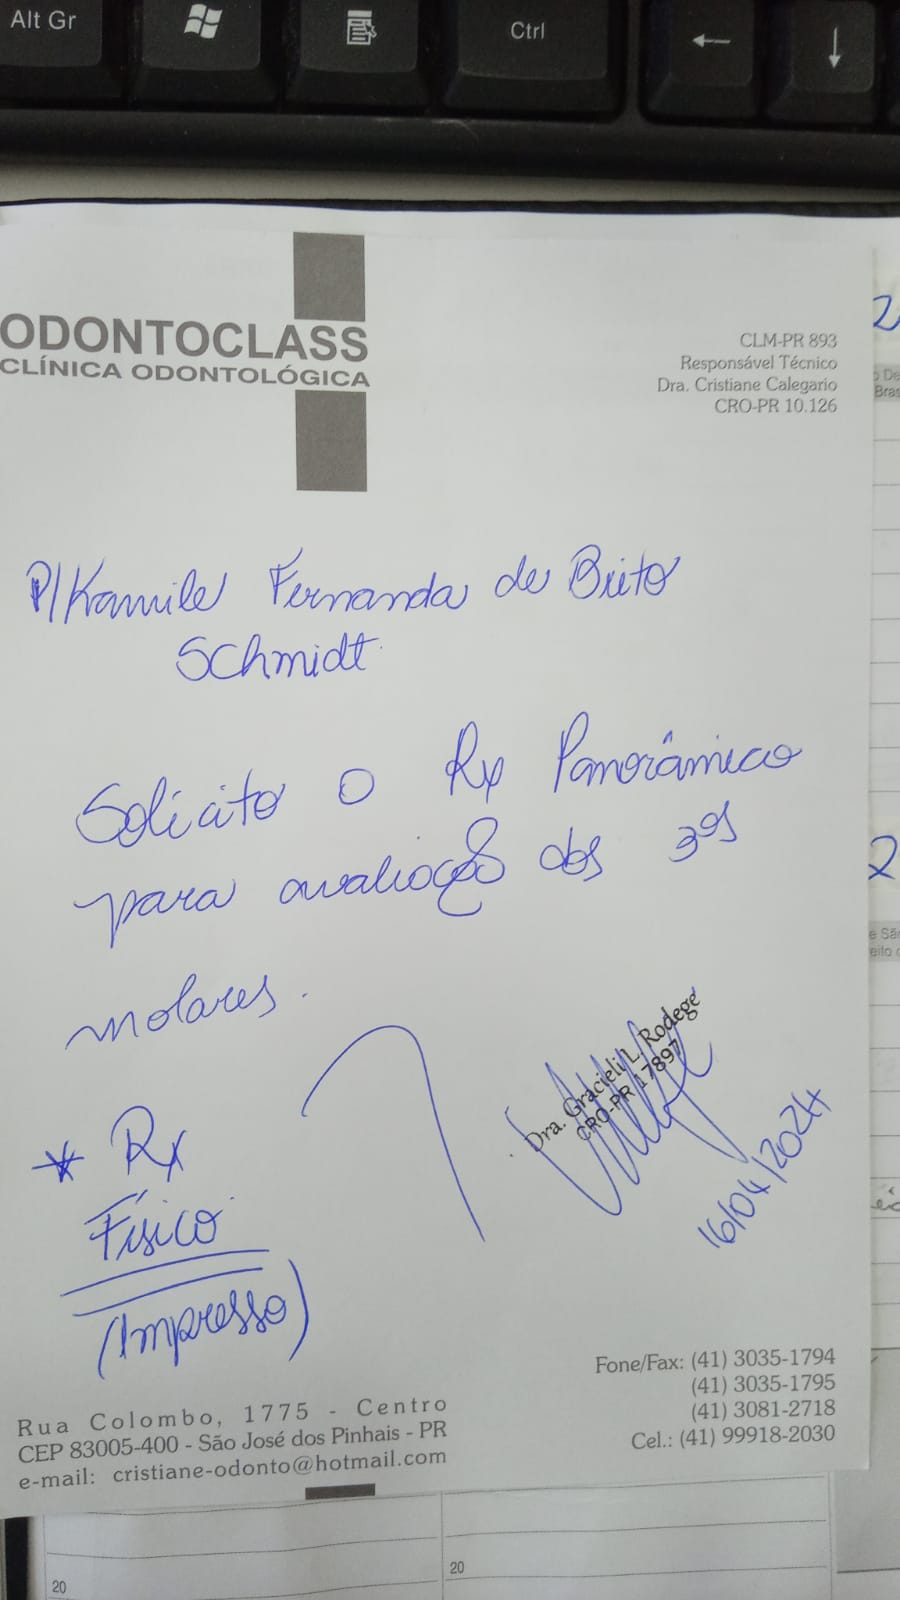 Alt Gr
Ctrl
ODONTOCLASS
CLÍNICA ODONTOLÓGICA
CLM-PR 893
Responsável Técnico
Dra. Cristiane Calegario
CRO-PR 10.126
P/Kamile Fernanda de Brito
Schmidt.
Solicito o Rx Panorâmico
para avaliação dos 3ºs
molares.
Dra. Gracieli L. Rodege
CRO-PR 17897
16/04/2024
* Rx
Físico
(Impresso)
Fone/Fax: (41) 3035-1794
(41) 3035-1795
(41) 3081-2718
Cel.: (41) 99918-2030
Rua Colombo, 1775 - Centro
CEP 83005-400 - São José dos Pinhais - PR
e-mail: cristiane-odonto@hotmail.com
2
Bras
2
e Sã
20
20